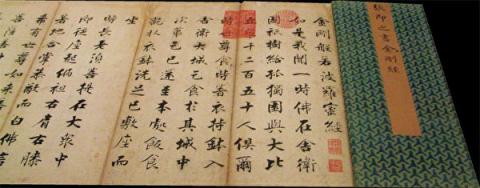 張即之書金剛經
金剛般若波羅蜜經
如是我聞一時佛在舍衛
國祇樹給孤獨園與大比
丘眾千二百五十人俱爾
時世尊食時著衣持鉢入
舍衛大城乞食於其城中
次第乞已還至本處飯食
訖收衣鉢洗足已敷座而
坐
時長老須菩提在大眾中
即從座起偏袒右肩右膝
著地合掌恭敬而白佛言
希有世尊如來善